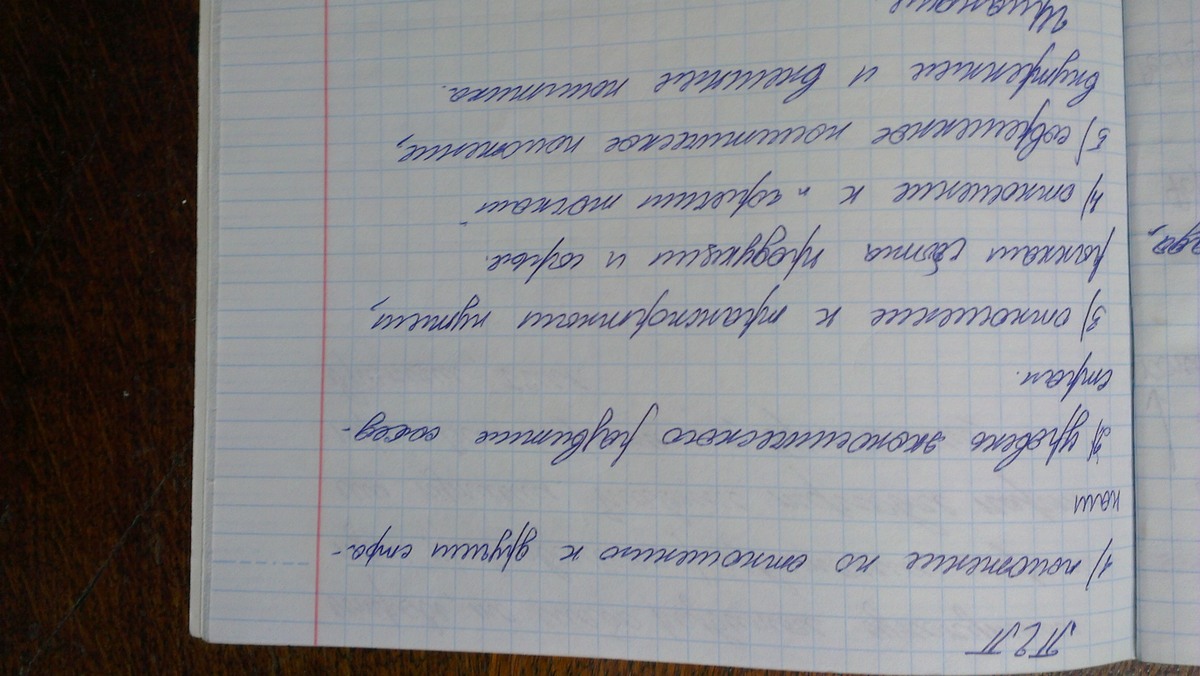 ПГП
1) положение по отношению к другим стра-
нам
2) уровень экономического развитие сосед-
стран.
3) отношение к транспортным путям,
рынкам сбыта продукции и сырье.
4) отношение к "горячим точкам"
5) современное политическое положение,
внутренние и внешние политика.